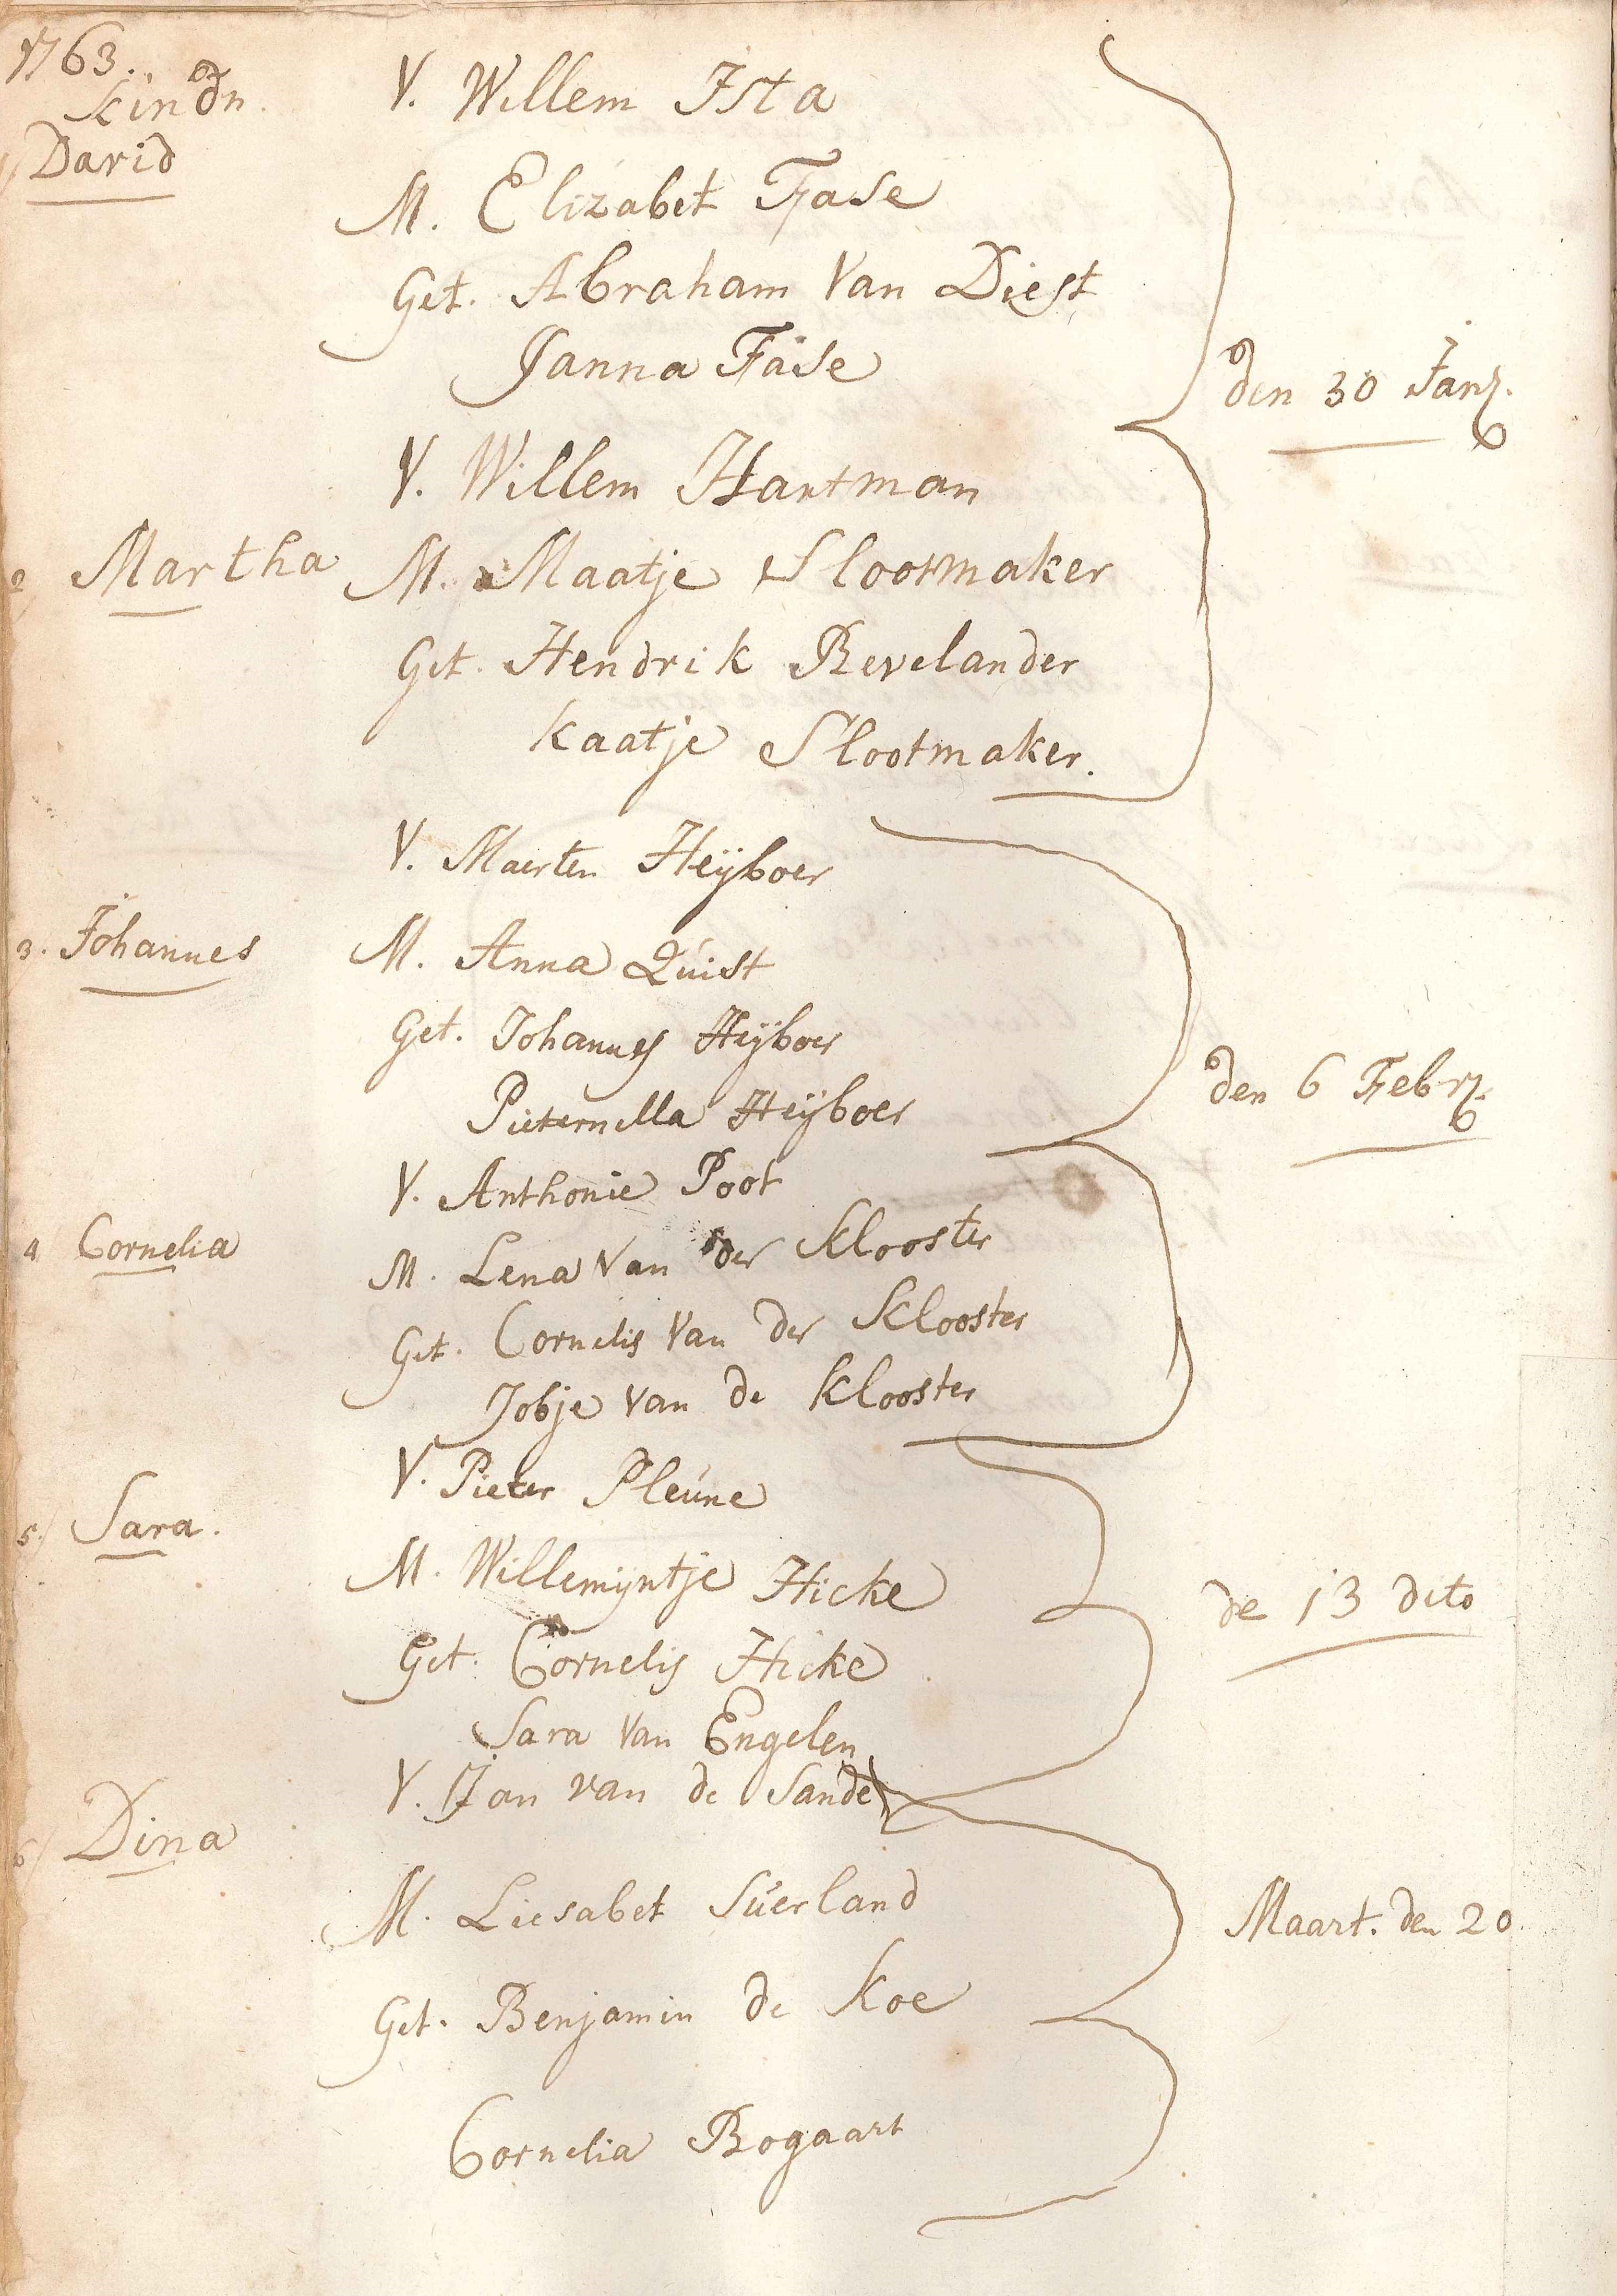 1763.
Kindn.
1/ David
V. Willem Ista
M. Elizabet Fase
Get. Abraham Van Diest
Janna Fase
den 30 Jan.
V. Willem Hartman
2/ Martha M. Maatje Slootmaker
Get. Hendrik Revelander
Kaatje Slootmaker.
V. Maerten Heÿboer
3. Johannes M. Anna Quist
Get. Johannes Heÿboer
Pieternella Heÿboer
den 6 Febr.
V. Anthonie Poot
4 Cornelia M. Lena Van der Klooster
Get. Cornelis Van der Klooster
Jobje van de Klooster
V. Pieter Pleune
5/ Sara.
M. Willemijntje Hicke
de 13 dito
Get. Cornelis Hicke
Sara Van Engelen
V. Jan van de Sande
6/ Dina
M. Liesabet Suerland
Maart. den 20.
Get. Benjamin de Koe
Cornelia Bogaart